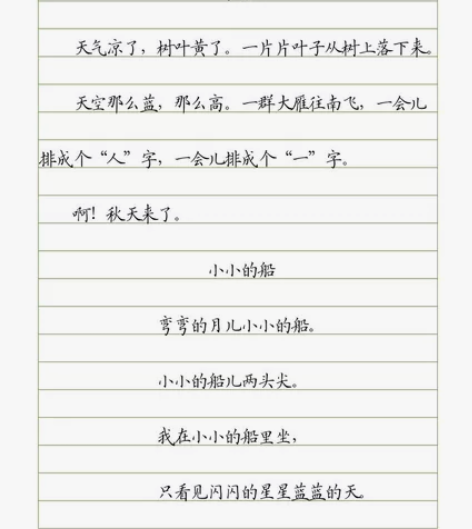 天气凉了，树叶黄了。一片片叶子从树上落下来。
天空那么蓝，那么高。一群大雁往南飞，一会儿
排成个“人”字，一会儿排成个“一”字。
啊！秋天来了。
小小的船
弯弯的月儿小小的船。
小小的船儿两头尖。
我在小小的船里坐，
只看见闪闪的星星蓝蓝的天。